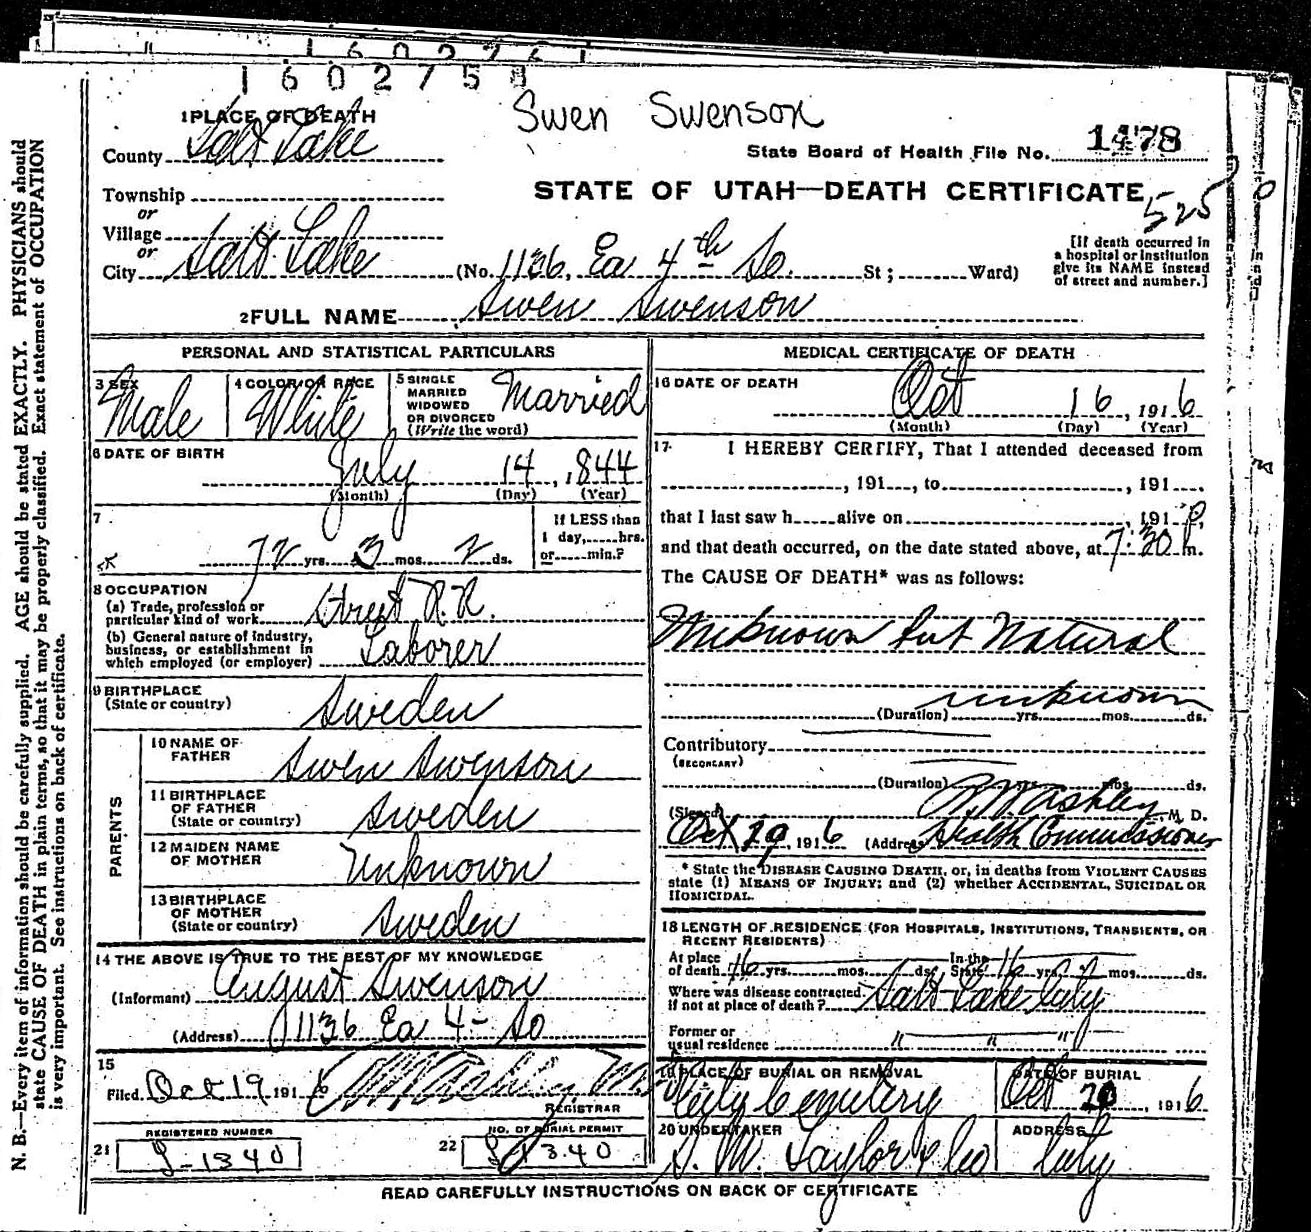 1 6 0 2 7 5 8
Swen Swenson
1 PLACE OF DEATH
County Salt Lake
State Board of Health File No. 1478
Township
STATE OF UTAH—DEATH CERTIFICATE
525
or
Village
or
City Salt Lake (No. 1136, Ea 4th So. St; Ward)
[If death occurred in a hospital or institution give its NAME instead of street and number.]
2 FULL NAME Swen Swenson
PERSONAL AND STATISTICAL PARTICULARS
3 SEX Male
4 COLOR OR RACE White
5 SINGLE MARRIED WIDOWED OR DIVORCED (Write the word) Married
6 DATE OF BIRTH
July 14, 1844
(Month) (Day) (Year)
7
72 yrs. 3 mos. 2 ds.
If LESS than 1 day, hrs. or min.?
8 OCCUPATION
(a) Trade, profession or particular kind of work Street R.R.
(b) General nature of industry, business, or establishment in which employed (or employer) Laborer
9 BIRTHPLACE (State or country) Sweden
PARENTS
10 NAME OF FATHER Swen Swenson
11 BIRTHPLACE OF FATHER (State or country) Sweden
12 MAIDEN NAME OF MOTHER Unknown
13 BIRTHPLACE OF MOTHER (State or country) Sweden
14 THE ABOVE IS TRUE TO THE BEST OF MY KNOWLEDGE
(Informant) August Swenson
(Address) 1136 Ea 4- So
15
Filed Oct 19 1916
REGISTRAR
REGISTERED NUMBER
21 1340
NO. OF BURIAL PERMIT
22 1340
MEDICAL CERTIFICATE OF DEATH
16 DATE OF DEATH
Oct 16, 1916
(Month) (Day) (Year)
17 I HEREBY CERTIFY, That I attended deceased from
, 191 , to , 191
that I last saw h alive on , 191
and that death occurred, on the date stated above, at 7:30 P m.
The CAUSE OF DEATH* was as follows:
Unknown but Natural
unknown
(Duration) yrs. mos. ds.
Contributory
(SECONDARY)
(Duration) yrs. mos. ds.
(Signed) Ashley M. D.
Oct 19, 1916 (Address) Health Commissioner
* State the DISEASE CAUSING DEATH, or, in deaths from VIOLENT CAUSES state (1) MEANS OF INJURY; and (2) whether ACCIDENTAL, SUICIDAL OR HOMICIDAL.
18 LENGTH OF RESIDENCE (FOR HOSPITALS, INSTITUTIONS, TRANSIENTS, OR RECENT RESIDENTS)
At place of death 16 yrs. mos. ds. In the State 16 yrs. mos. ds.
Where was disease contracted, if not at place of death? Salt Lake City
Former or usual residence " " "
19 PLACE OF BURIAL OR REMOVAL City Cemetery
DATE OF BURIAL Oct 20, 1916
20 UNDERTAKER S. M. Taylor & Co
ADDRESS City
READ CAREFULLY INSTRUCTIONS ON BACK OF CERTIFICATE
N. B.—Every item of information should be carefully supplied. AGE should be stated EXACTLY. PHYSICIANS should
state CAUSE OF DEATH in plain terms, so that it may be properly classified. Exact statement of OCCUPATION
is very important. See instructions on back of certificate.